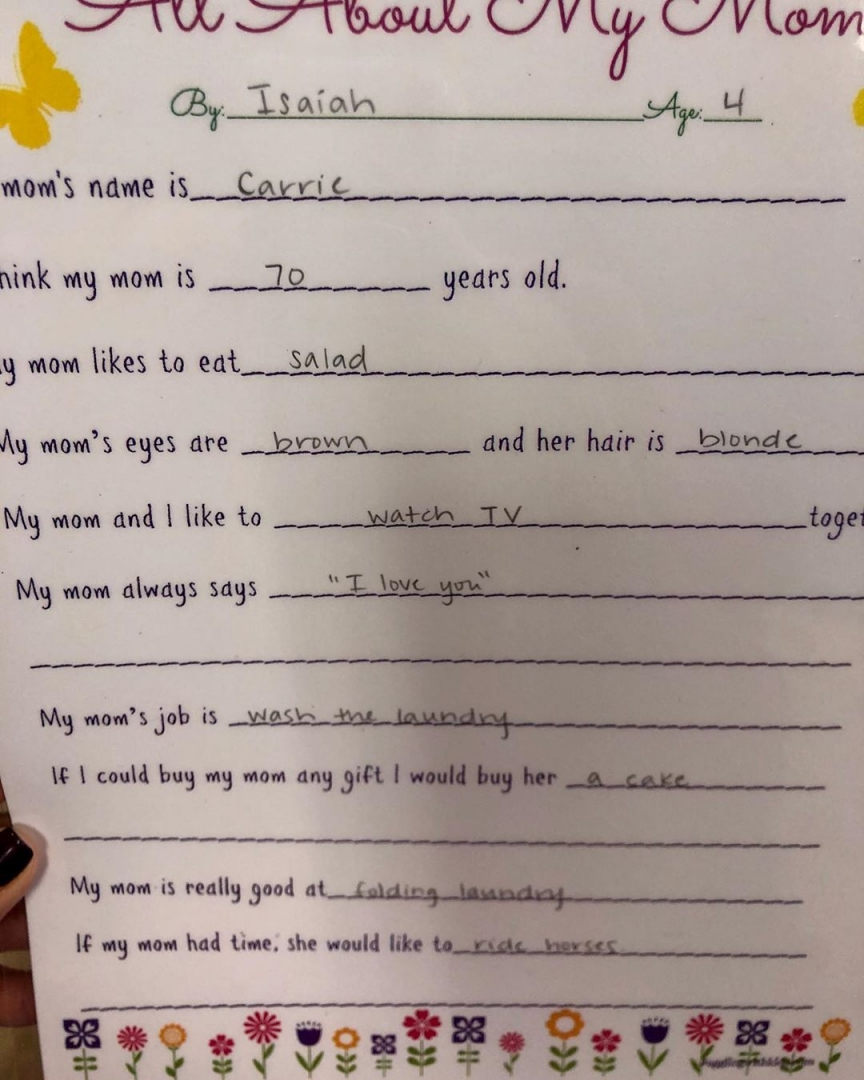 All About My Mom
By: Isaiah Age: 4
mom's name is Carrie
hink my mom is 70 years old.
y mom likes to eat salad
My mom's eyes are brown and her hair is blonde
My mom and I like to watch TV toget
My mom always says "I love you"
My mom's job is wash the laundry
If I could buy my mom any gift I would buy her a cake
My mom is really good at folding laundry
If my mom had time, she would like to ride horses